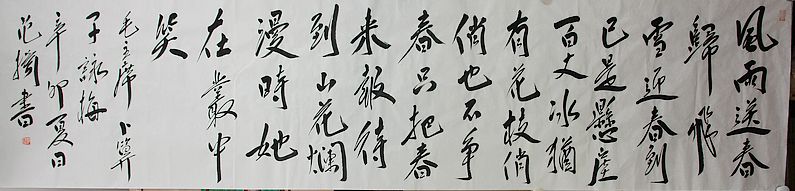 風雨送春
歸飛
雪迎春到
已是懸崖
百丈冰猶
有花枝俏
俏也不争
春只把春
来報待
到山花爛
漫時她
在叢中
笑
毛主席卜算
子詠梅
辛卯夏日
書